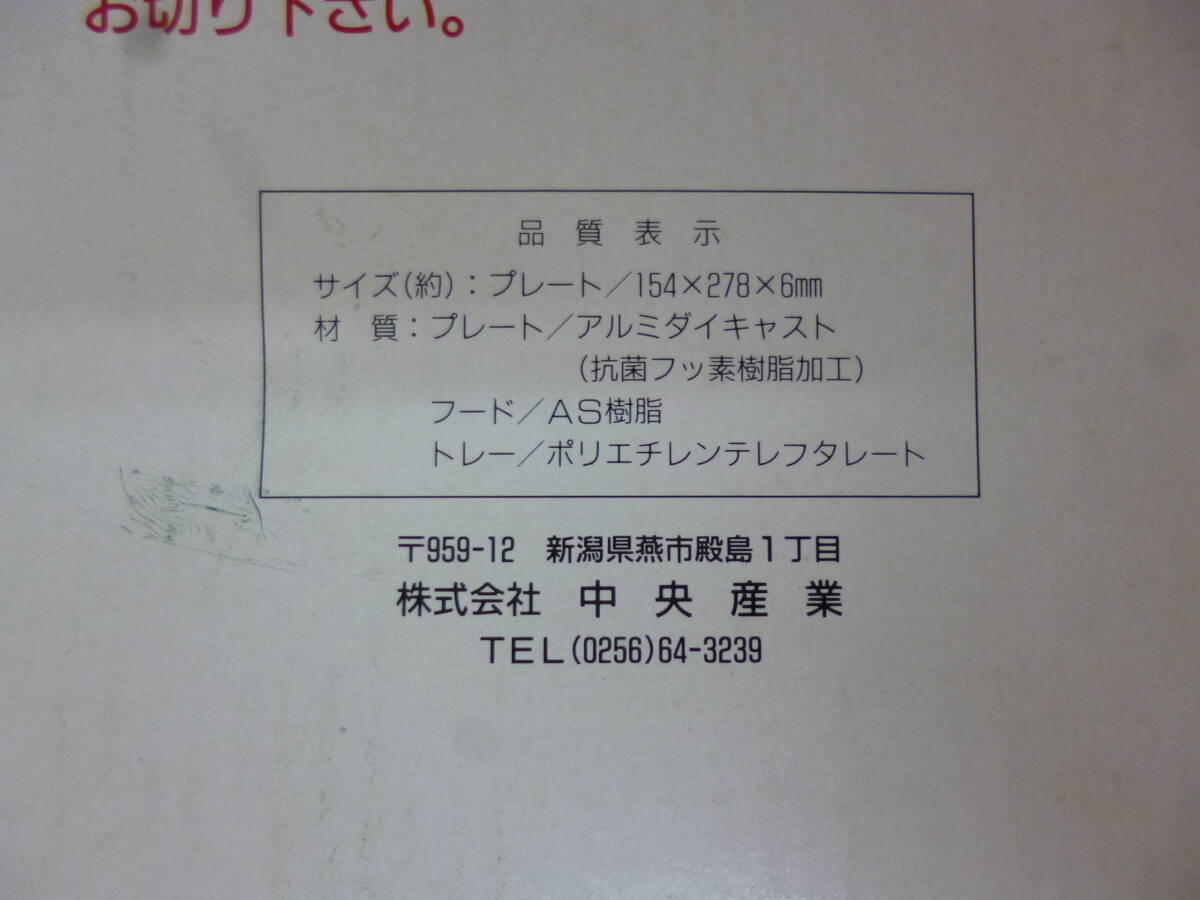 お切り下さい。
品質表示
サイズ(約)：プレート／154×278×6mm
材質：プレート／アルミダイキャスト
(抗菌フッ素樹脂加工)
フード／AS樹脂
トレー／ポリエチレンテレフタレート
〒959-12 新潟県燕市殿島1丁目
株式会社 中央産業
TEL(0256)64-3239